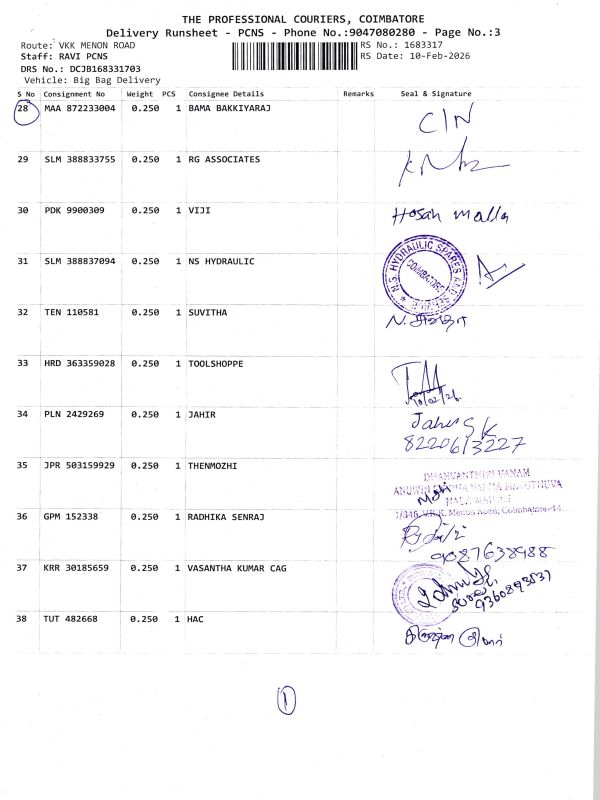 THE PROFESSIONAL COURIERS, COIMBATORE
Delivery Runsheet - PCNS - Phone No.:9047080280 - Page No.:3
Route: VKK MENON ROAD
RS No.: 1683317
Staff: RAVI PCNS
RS Date: 10-Feb-2026
DRS No.: DCJB168331703
Vehicle: Big Bag Delivery
S No Consignment No Weight PCS Consignee Details Remarks Seal & Signature
28 MAA 872233004 0.250 1 BAMA BAKKIYARAJ CIN
29 SLM 388833755 0.250 1 RG ASSOCIATES
30 PDK 9900309 0.250 1 VIJI Hosan malla
31 SLM 388837094 0.250 1 NS HYDRAULIC
N.S. HYDRAULIC SPARES AND
COIMBATORE
32 TEN 110581 0.250 1 SUVITHA
33 HRD 363359028 0.250 1 TOOLSHOPPE
10/02/26
34 PLN 2429269 0.250 1 JAHIR Jaher SK
8220613227
35 JPR 503159929 0.250 1 THENMOZHI
DHANVANTHIRI VANAM
1/346, V.K.K. Menon Road, Coimbatore-44.
36 GPM 152338 0.250 1 RADHIKA SENRAJ
9087638988
37 KRR 30185659 0.250 1 VASANTHA KUMAR CAG
9360893531
38 TUT 482668 0.250 1 HAC
1